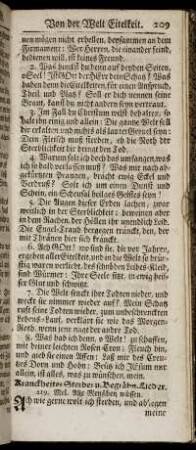 Von der Welt Eitelkeit. 209
nen mögen nicht erhellen, beysammen an dem
Firmament: Wer Herren, die einander feind,
bedienen will, ist keines Freund.
2. Was hinckst du denn auf beyden Seiten,
o Seel! Ist GOtt der HErr dein Schatz? Was
haben denn die Eitelkeiten, für einen Anspruch,
Theil und Platz? Soll er dich nennen seine
Braut, kanst du nicht andern seyn vertraut.
3. Im Fall du Christum wilst behalten, so
halt ihn einig und allein: die gantze Welt soll
dir erkalten, und nichts als lauter Greuel seyn:
Dein Fleisch muß sterben, eh die Noth der
Sterblichkeit dir bringt den Tod.
4. Warum solt ich doch das umfangen, was
ich so bald verlassen muß? Was mir nach ab-
gekürtzten Prangen, bracht ewig Eckel und
Verdruß? Solt ich um einen Dunst und
Schein, ein Scheusal heilges Geistes seyn?
5. Die Augen dieser Erden lachen, zwar
weidlich in der Sterblichkeit; gewinnen aber
in dem Rachen, der Höllen ihr unendlich Leid.
Die Engel-Traub dergegen tränckt, den, der
mit Thränen hier sich kränckt.
6. Ach GOtt! wo sind sie, die vor Jahren,
ergeben aller Eitelkeit, und in die Welt so brün-
stig waren verliebt, des schnöden Leibes-Kleid,
sind Würmer: Ihre Seele sitzt, in ewig heis-
ser Angst und schwitzt.
7. Die Stule senckt ihre Todten nieder, und
weckt sie nimmer wieder auf: GOtt aber ruft
schon seine Todten wieder, zum unbeschrenckten
Lebens-Lauf, verklärt sie wie das Morgen-
Roth, wenn jene nagt der andre Tod.
8. Was hab ich denn, o Welt! zu schaffen,
mit deiner leichten Rosen-Cron: Fleuch hin,
und gieb sie einen Affen: Laß mir des Creu-
tzes Dorn und Hohn: Besitz ich JEsum nur
allein, ist alles, was zu wünschen, mein.
Kranckheits- Sterbe- u. Begräbn. Lieder.
219. Mel. Alle Menschen müssen.
Ach wie gerne wolt ich sterben, und ablegen
meine